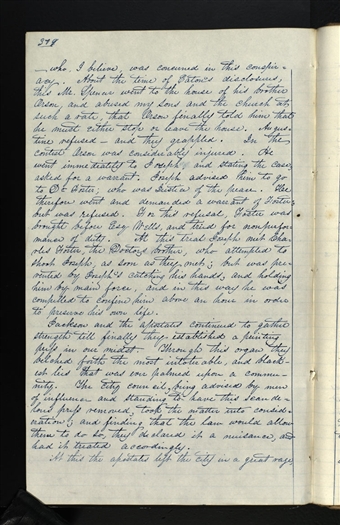 274
— who, I believe, was concerned in this conspir-
acy. About the time of Eaton's disclosures,
this Mr. Spencer went to the house of his brother
Orson, and abused my sons and the church at
such a rate, that Orson finally told him that
he must either stop or leave the house. Augus-
tine refused — and they grappled. In the
contest Orson was considerably injured. He
went immediately to Joseph, and stating the case,
asked for a warrant. Joseph advised him to go
to Dr Foster, who was Justice of the peace. He
therefore went and demanded a warrant of Foster,
but was refused. For this refusal, Foster was
brought before Esq. Wells, and tried for nonperfor-
mance of duty. At this trial Joseph met Char-
les Foster, the Doctor's brother, who attempted to
shoot Joseph, as soon as they met; but was pre-
vented by Joseph's catching his hands, and holding
him by main force, and in this way he was
compelled to confine him above an hour in order
to preserve his own life.
Jackson and the apostates continued to gather
strength till finally they established a printing
press in our midst. Through this organ they
belched forth the most intolerable, and black-
est lies that was ever palmed upon a commu-
nity. The City council, being advised by men
of influence and standing to have this scan-
dalous press removed, took the matter into consid-
eration; and finding that the law would allow
them to do so, they declared it a nuisance, and
had it treated accordingly.
At this the apostates left the city in a great rage,